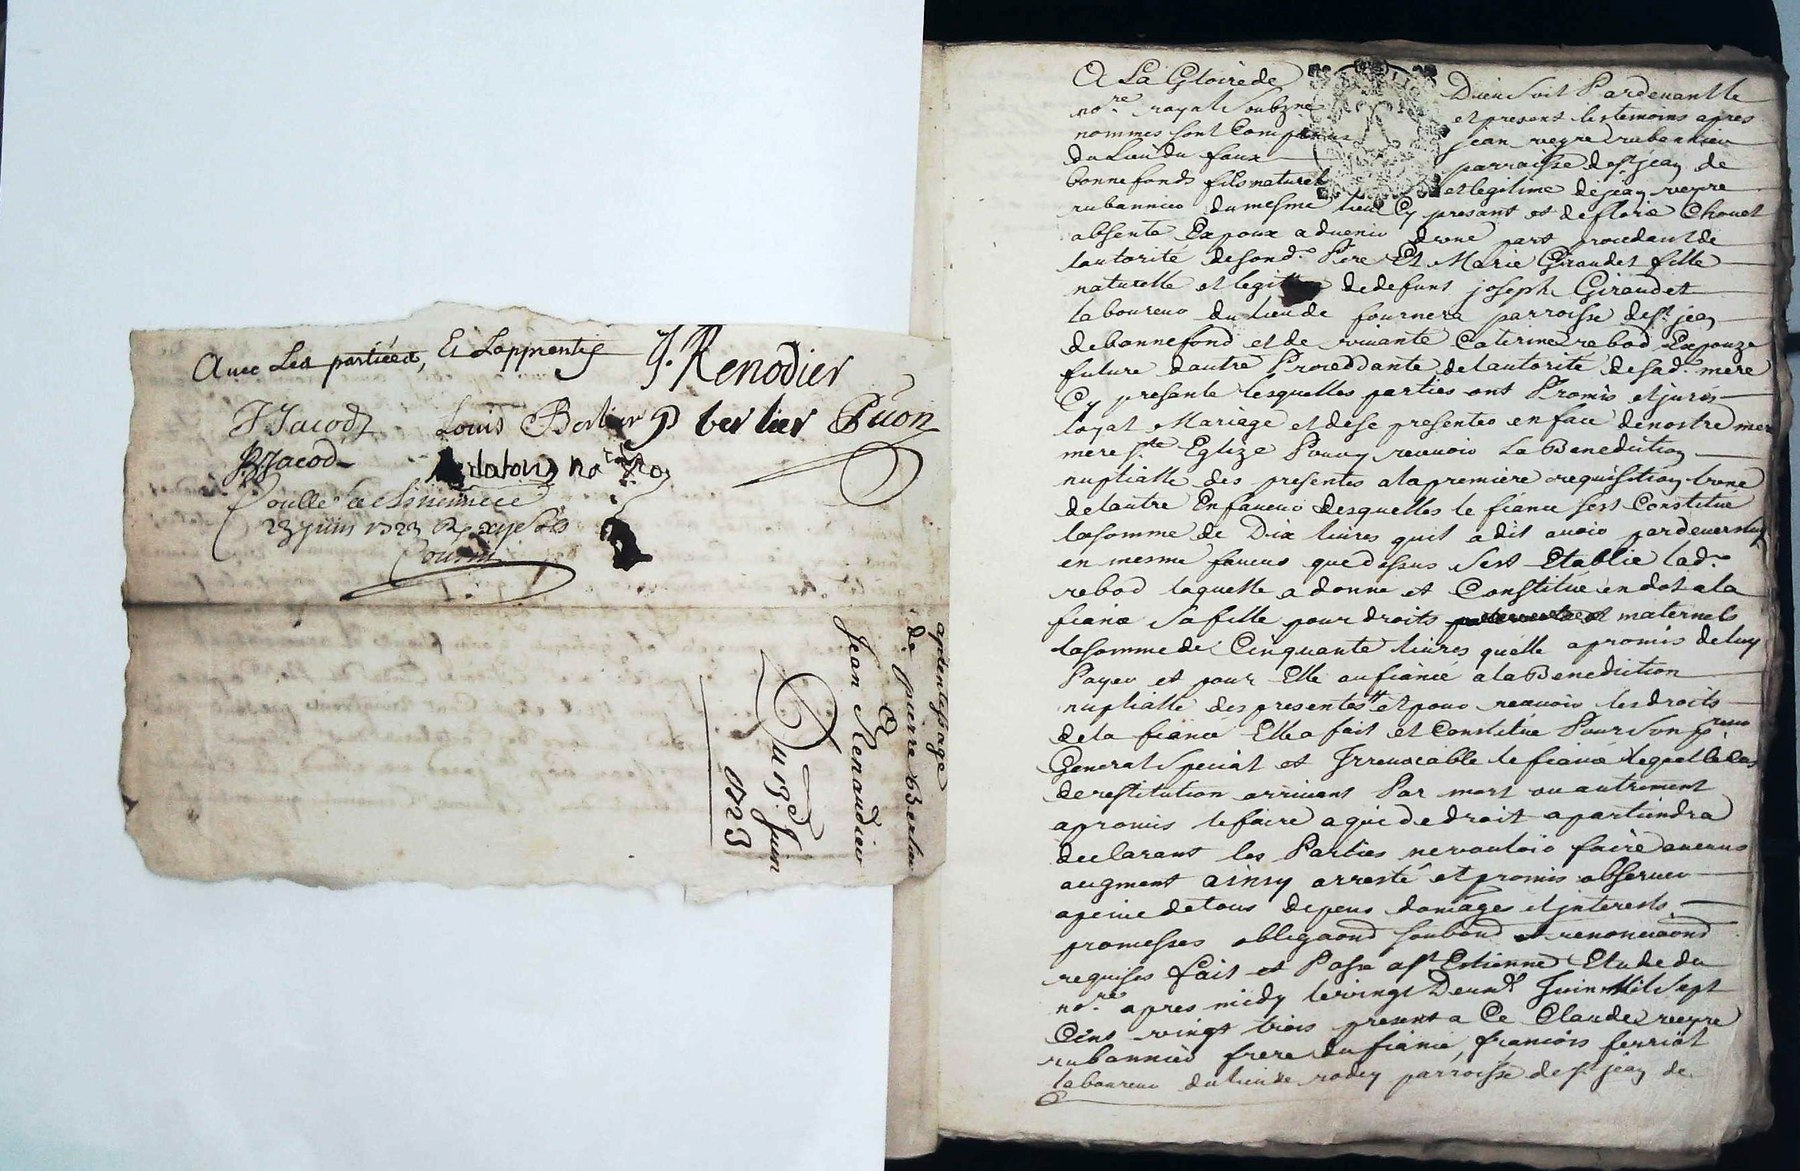 Avec Les partiees, Et Lapprentis J. Renodier
J Jacod Louis Berlier P berlier Buon
BJacod dalong no.re Roy
Conllé a St Etienne ce
23 juin 1723 R
apprentissage
de pierre Berlier
Jean Renaudier
Du 13e Juin
1723
A La Gloire de Dieu Soit Pardevant le
no.re royal Soubzne et present les temoins apres
nommes sont Comparus jean veyre rubannier
du Lieu du faux parroisse de st jean de
bonnefonds fils naturel et legitime de jean veyre
rubannier du mesme lieu Cy presant et de florie Chouet
absente Expoux aduenir dune part procedant de
lautorité de sond. Pere Et Marie Giraudet fille
naturelle et legit de defunt joseph Giraudet
laboureur du lieu de fournera parroisse de st jean
de bonnefond et de viuante Caterine rebod Expouze
future dautre Proceddante de lautorité de sad. mere
Cy presante lesquelles parties ont Promis et jurés
loyal Mariage et de se presenter en face de nostre mere
mere ste Eglize Pour y receuoir La Benediction
nuptialle des presentes a la premiere requisition lune
de lautre En faueur desquelles le fiancé sest Constitué
la somme de Dix liures quil a dit auoir pardeuers luy
en mesme faueur que dessus sest Etablie lad.
rebod laquelle a donné et Constitué en dot a la
fiancé sa fille pour droits maternels
la somme de Cinquante liures quelle a promis de luy
Payer et pour Elle au fiancé a la Benediction
nuptialle des presentes et pour receuoir les droits
de la fiancé Elle a fait et Constitué Pour son p.reur
General Special et Irreuocable le fiancé lequel le cas
de restitution arriuant Par mort ou autrement
a promis le faire a qui de droit apartiendra
declarant les Parties ne vouloir faire aucuns
augment ainsy arresté et promis obseruer
a peine de tous depens domages et jnterests
promesses obligaond soubond et renonciaond
requises fait et Passé a st Estienne Etude du
no.re apres midy le vingt Deux.e Juin Mil Sept
Cens vingt trois present a Ce Claude veyre
rubannier frere du fiancé, francois ferriot
laboureur du lieu de rodey parroisse de st jean de